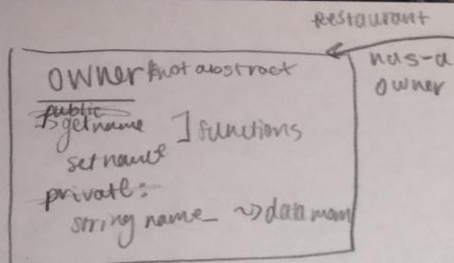 Restaurant
has-a
owner
owner not abstract
public
getname ] functions
setname
private:
string name_ ~> data mem